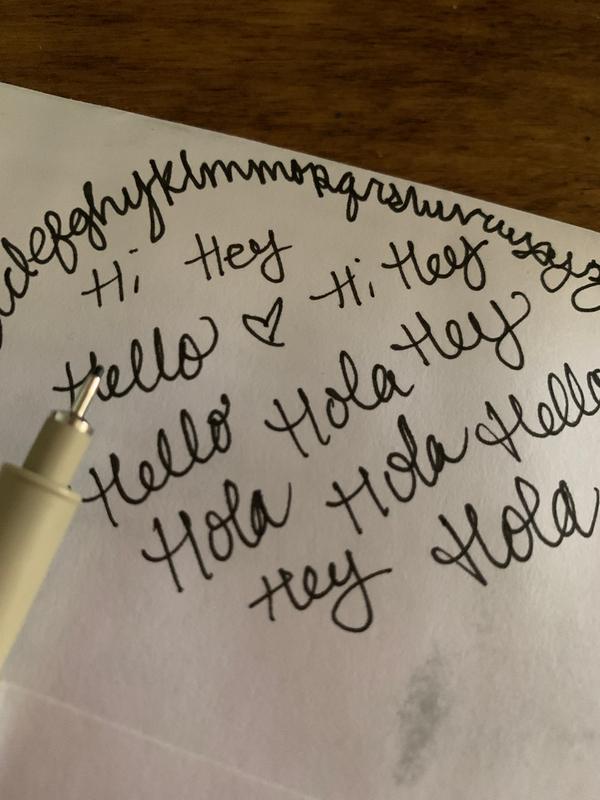 cdefghijklmnopqrstuvwxyz
Hi Hey Hi Hey
Hello ♡ Hey
Hello Hola Hello
Hola Hola
Hey Hola